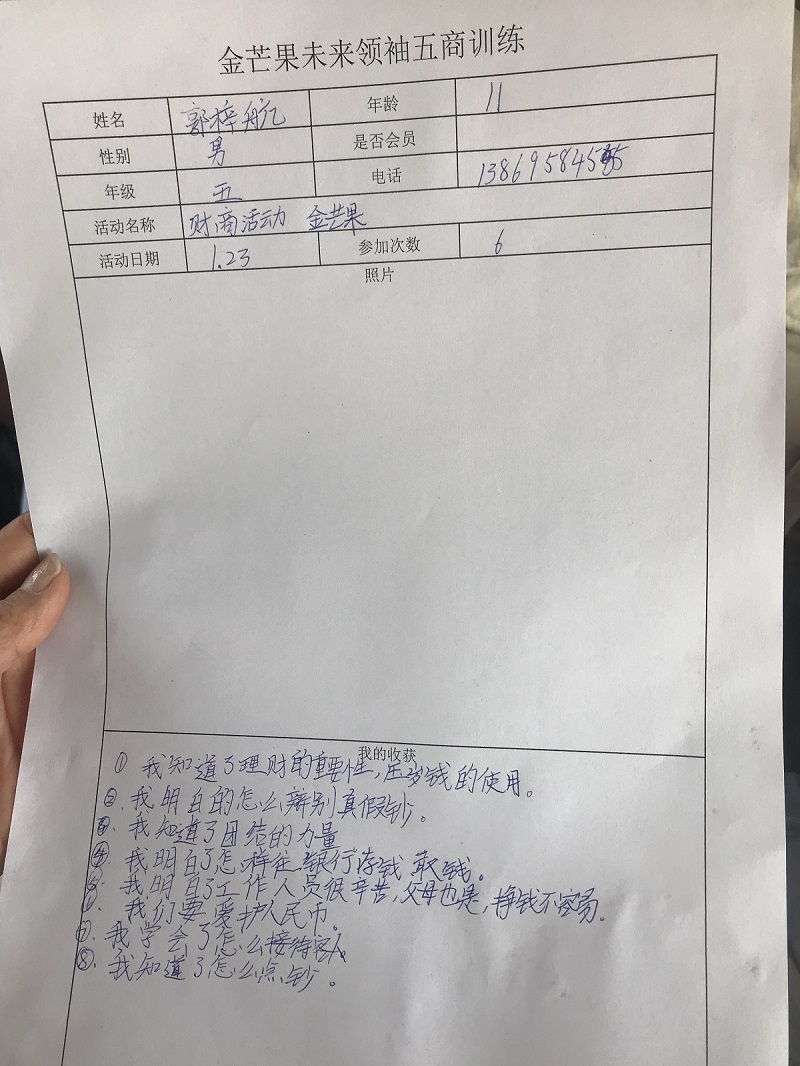 金芒果未来领袖五商训练
姓名 郭梓航 年龄 11
性别 男 是否会员
年级 五 电话 138695845
活动名称 财商活动 金芒果
活动日期 1.23 参加次数 6
照片
我的收获
① 我知道了理财的重要性,压岁钱的使用。
②. 我明白的怎么辨别真假钞。
③. 我知道了团结的力量
④. 我明白了怎样往银行存钱 取钱。
5. 我明白了工作人员很辛苦,父母也是,挣钱不容易。
6. 我们要爱护人民币。
⑦. 我学会了怎么接待客人
⑧. 我知道了怎么点钞。